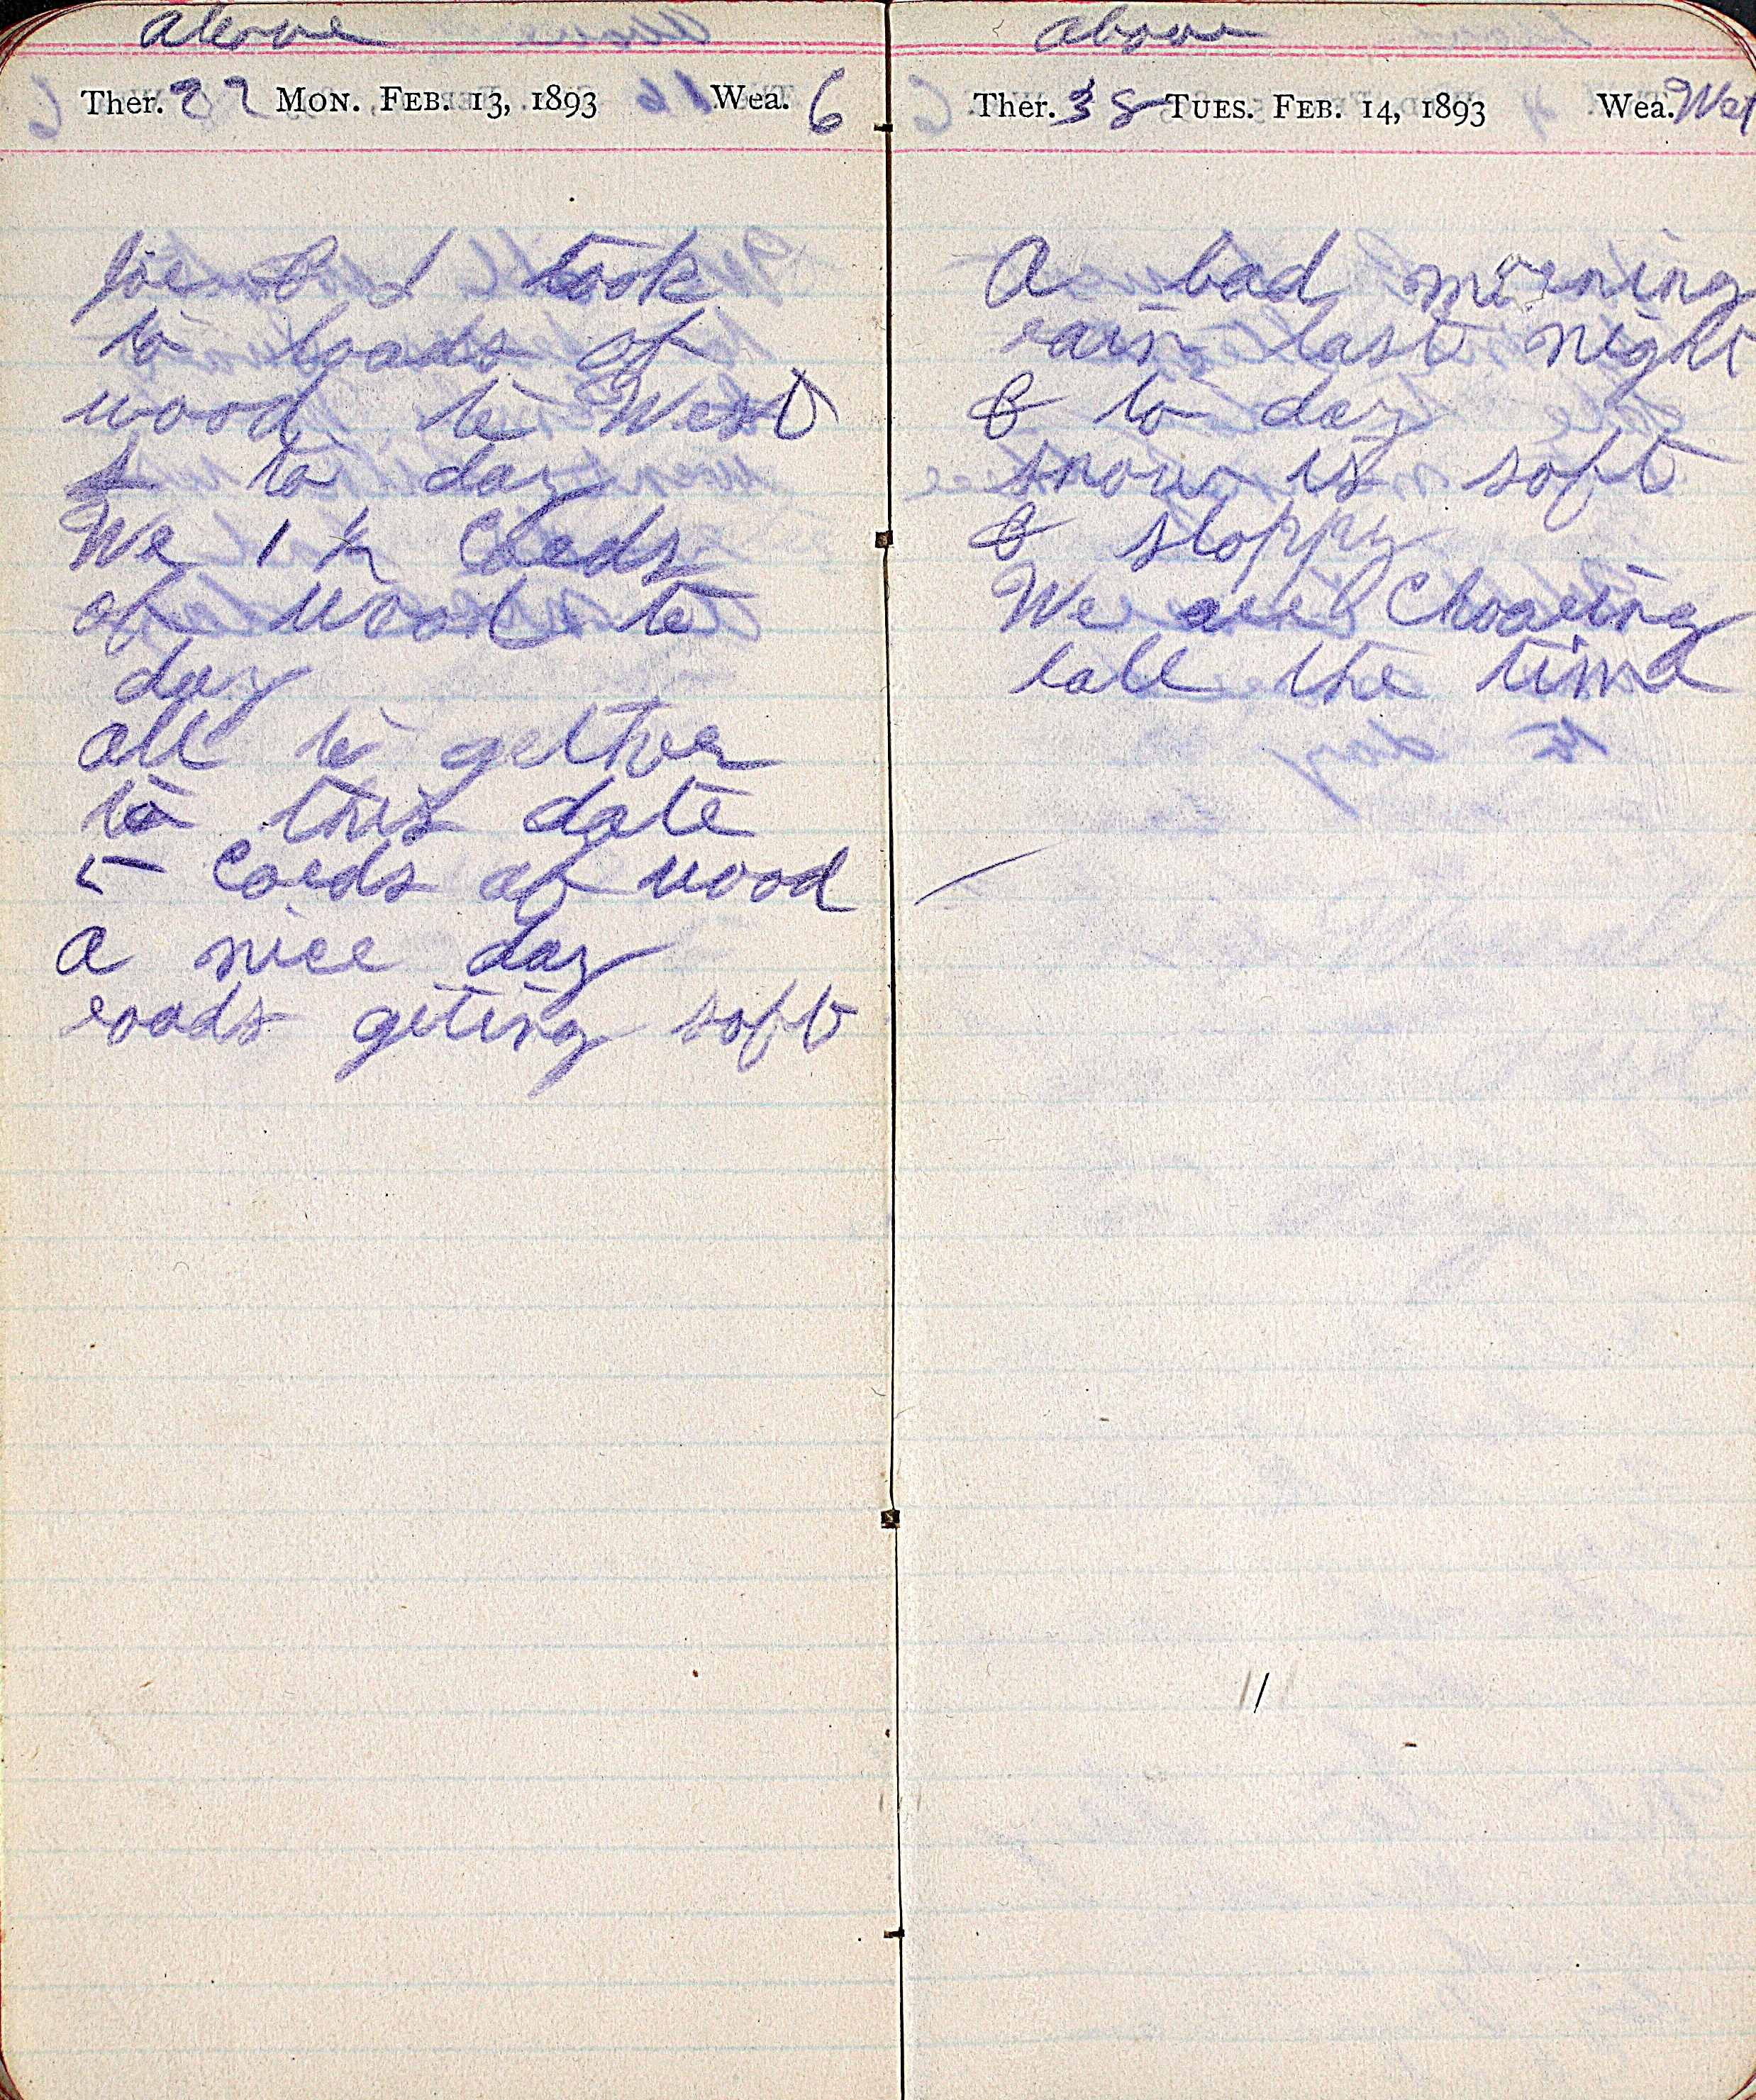 above
Ther. 22 MON. FEB. 13, 1893 Wea. 6
Joe & I took
to loads of
wood to West
to day
We 1 ½ Cords
of wood to
day
all to gether
to this date
5 Cords of wood
a nice day
roads giting soft
above
Ther. 38 TUES. FEB. 14, 1893 Wea. Wet
A bad morning
rain last night
& to day
snow is soft
& sloppy
We are Choaring
all the time